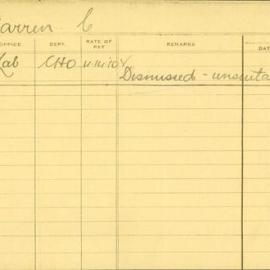 Warren C
OFFICE DEPT. RATE OF PAY REMARKS DATE
Lab CHO
Dismissed - unsuita